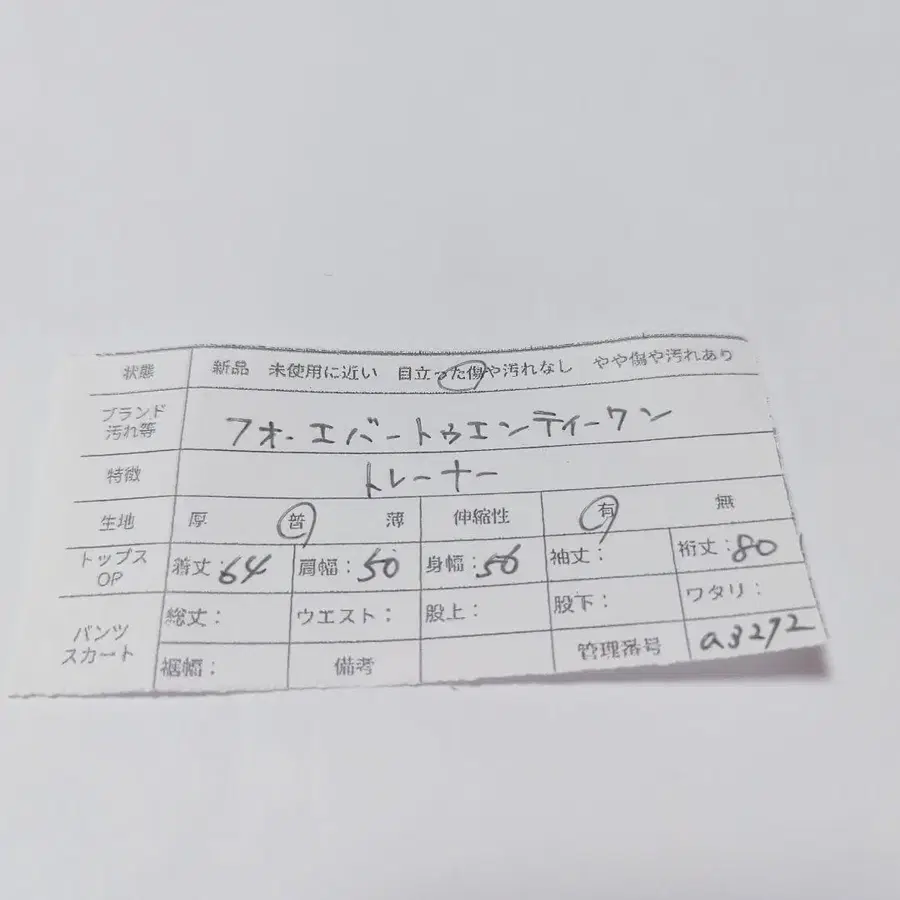 状態 新品 未使用に近い 目立った傷や汚れなし やや傷や汚れあり
ブランド
汚れ等 フォーエバートゥエンティーワン
特徴 トレーナー
生地 厚 普 薄 伸縮性 有 無
トップス
OP 着丈:64 肩幅:50 身幅:56 袖丈: 裄丈:80
パンツ
スカート 総丈: ウエスト: 股上: 股下: ワタリ:
裾幅: 備考 管理番号 a3272